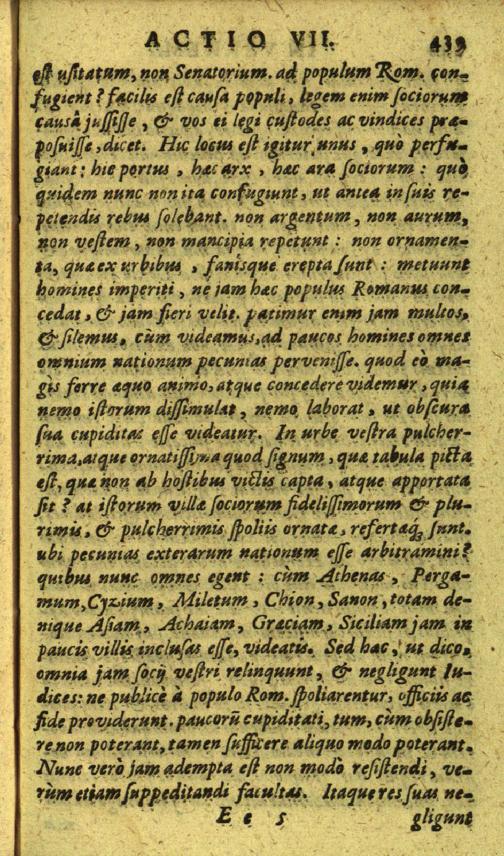 ACTIO VII. 439
eſt uſitatum, non Senatorium. ad populum Rom. con-
fugient? facilis est cauſa populi, legem enim ſociorum
cauſâ juſſiſſe, & vos ei legi cuſtodes ac vindices præ-
poſuiſſe, dicet. Hic locus eſt igitur unus, quò perfu-
giant: hic portus, hæc arx, hæc ara ſociorum: quò
quidem nunc non ita confugiunt, ut antea in ſuis re-
petendis rebus ſolebant. non argentum, non aurum,
non veſtem, non mancipia repetunt: non ornamen-
ta, quæ ex urbibus, fanisque erepta ſunt: metuunt
homines imperiti, ne jam hæc populus Romanus con-
cedat, & jam fieri velit. patimur enim jam multos,
& ſilemus, cùm videamus, ad paucos homines omnes
omnium nationum pecunias perveniſſe. quod eò ma-
gis ferre æquo animo, atque concedere videmur, quia
nemo iſtorum diſſimulat, nemo laborat, ut obſcura
ſua cupiditas eſſe videatur. In urbe veſtra pulcher-
rima, atque ornatiſſima quod ſignum, quæ tabula picta
est, quæ non ab hoſtibus victis capta, atque apportata
ſit? at iſtorum villæ ſociorum fideliſſimorum & plu-
rimis, & pulcherrimis ſpoliis ornatæ, refertæq́; ſunt.
ubi pecunias exterarum nationum eſſe arbitramini?
quibus nunc omnes egent: cùm Athenas, Perga-
mum, Cyzium, Miletum, Chion, Sanon, totam de-
nique Aſiam, Achaiam, Græciam, Siciliam jam in
paucis villis incluſas eſſe, videatis. Sed hæc, ut dico,
omnia jam ſocij veſtri relinquunt, & negligunt Iu-
dices: ne publicè à populo Rom. ſpoliarentur, officiis ac
fide providerunt. paucorũ cupiditati, tum, cùm obſiſte-
re non poterant, tamen ſufficere aliquo modo poterant.
Nunc verò jam adempta eſt non modò reſiſtendi, ve-
rùm etiam ſuppeditandi facultas. Itaque res ſuas ne-
E e 5 gligunt